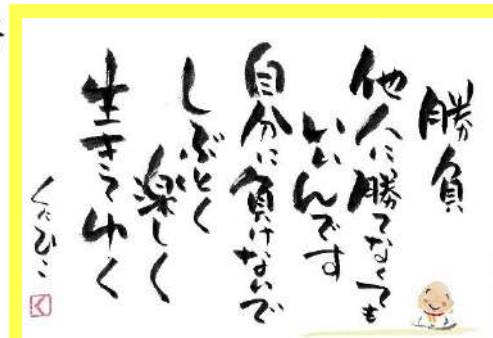 勝負
他人に勝てなくても
いいんです
自分に負けないで
しぶとく
楽しく
生きてゆく
くにひこ
く